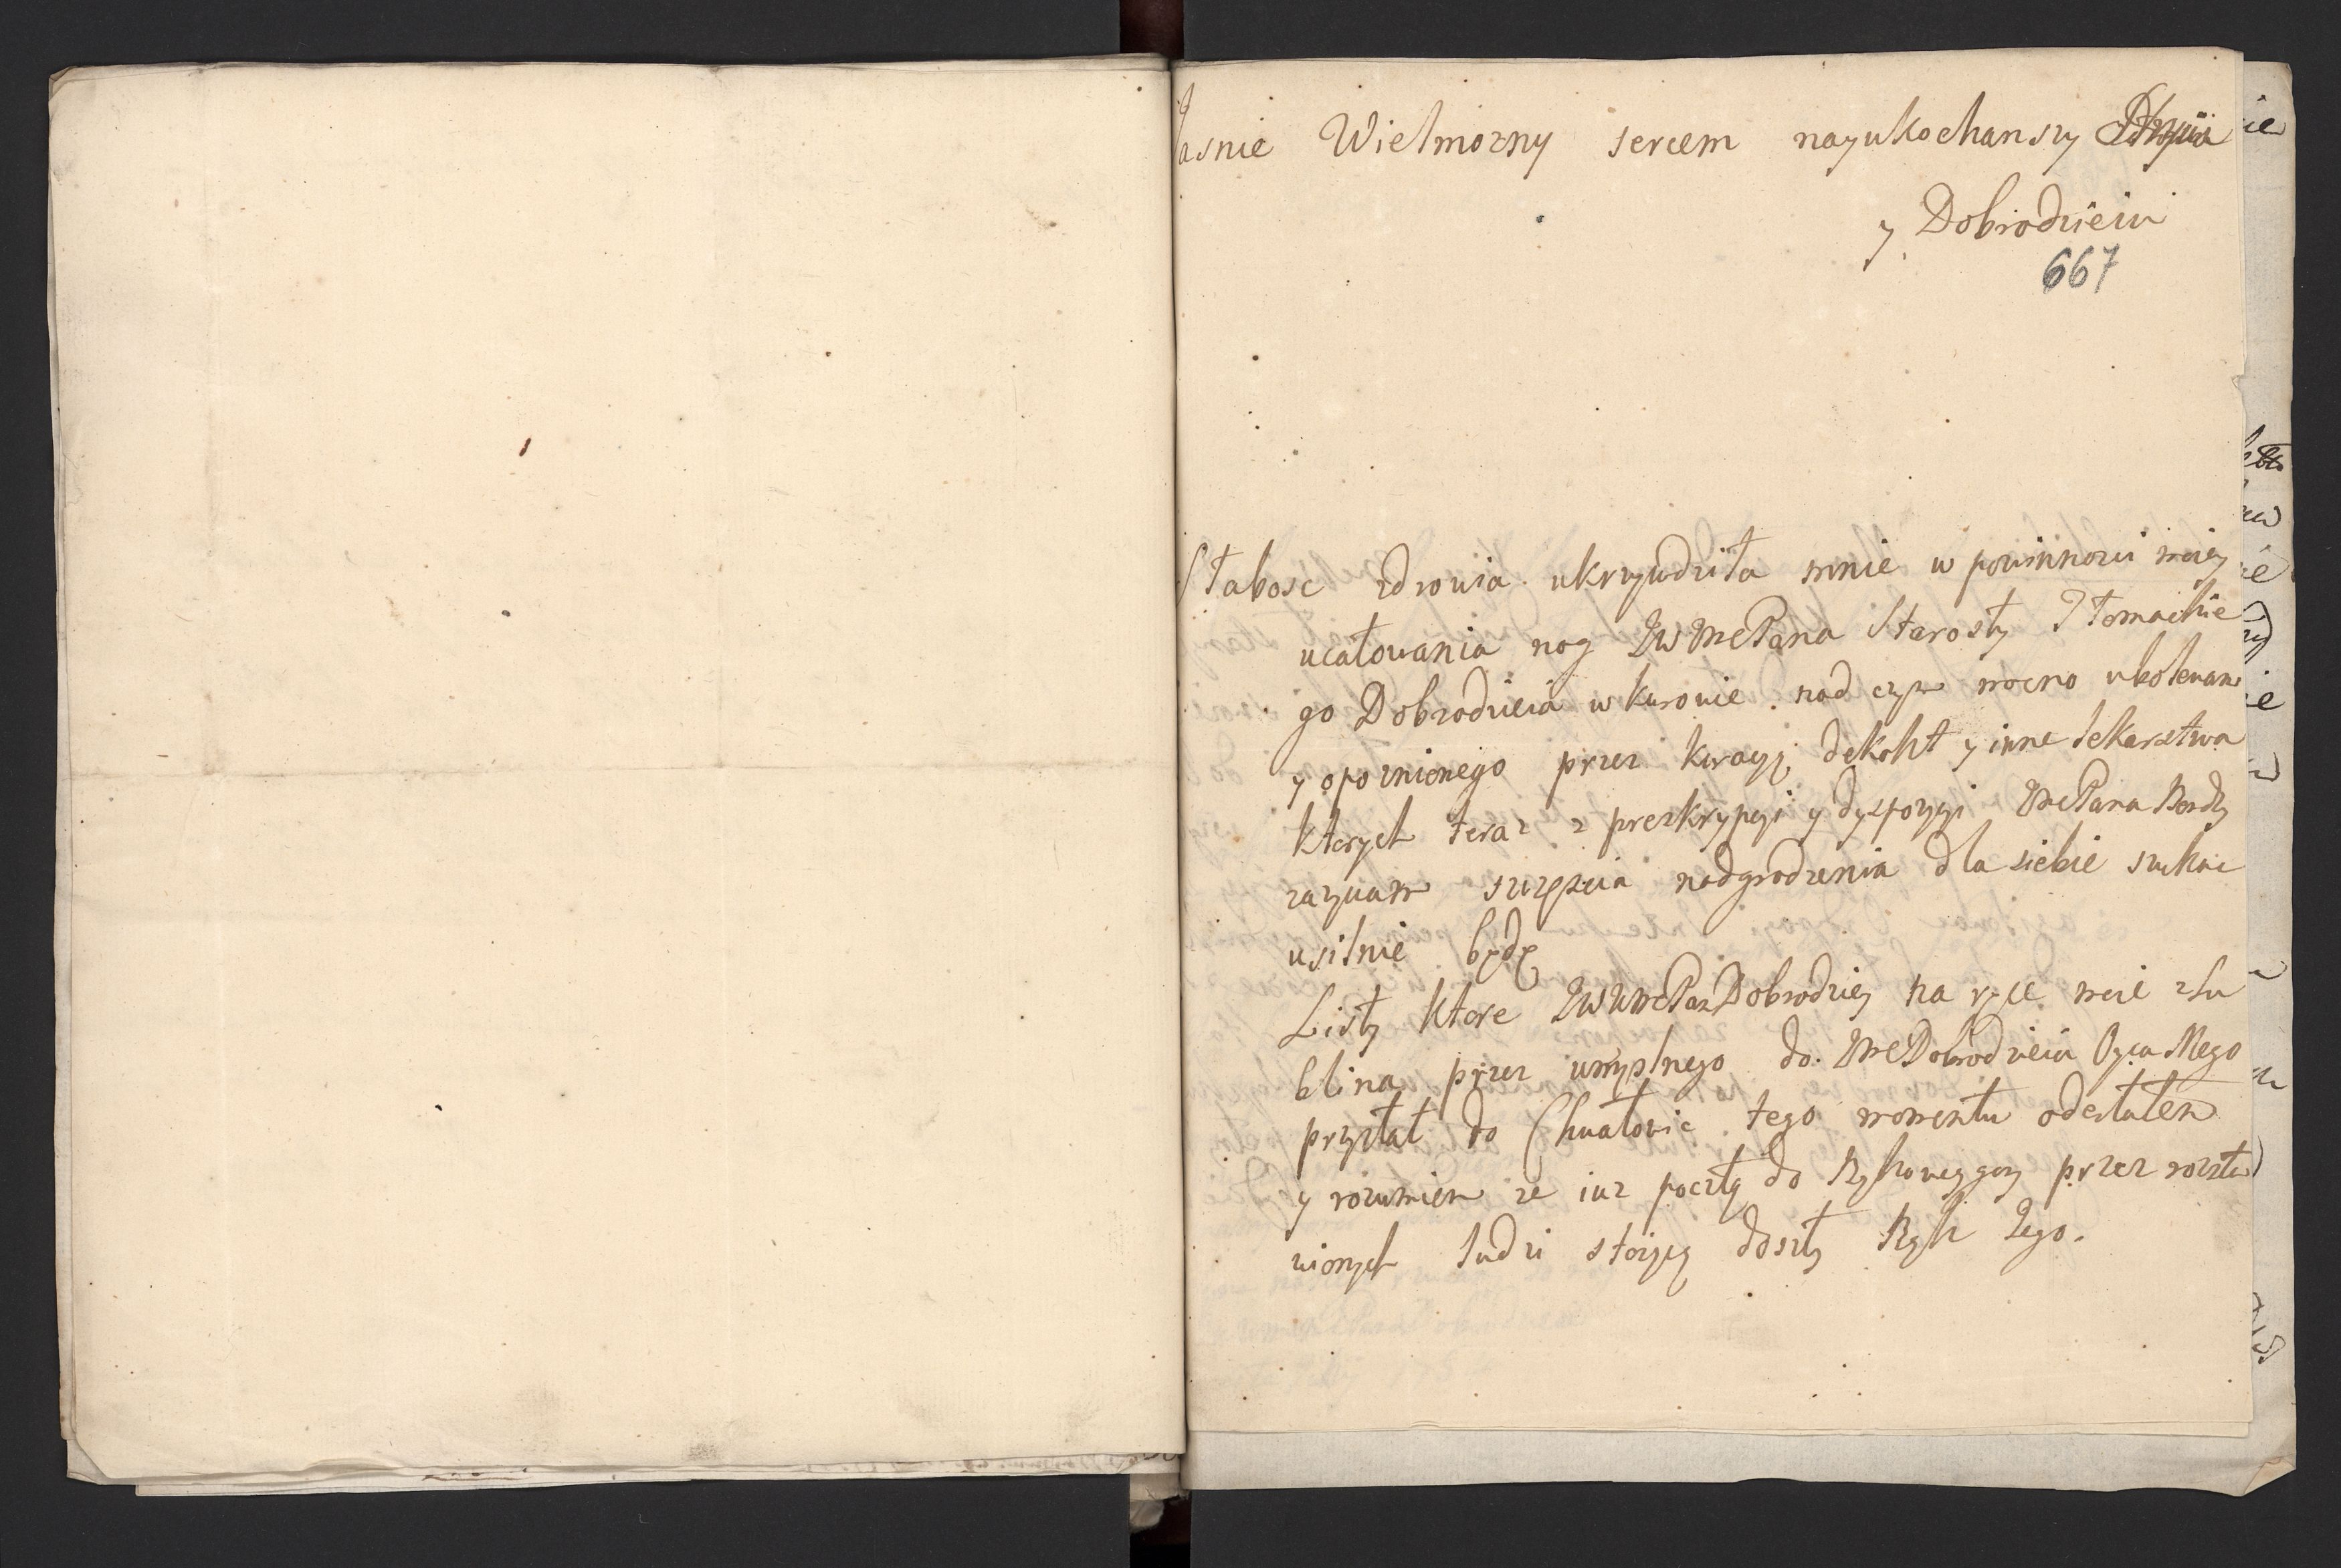 Jasnie Wielmozny sercem nayukochanszy Stryiu
y Dobrodzieiu
667
Słabosc zdrowia ukrzywdziła mnie w powinnosci moiey
ucałowania nog JWMcPana Starosty Tłomackie
go Dobrodzieia w Kurowie. nad czym mocno ubolewam
y opoznionego przez kuracyą dekokt y inne lekarstwa
ktorych teraz z preskrypcyi y dyspozycyi JMcPana
zazywam szczęscia nadgrodzenia dla siebie szukac
usilnie będę
Listy ktore JWWMcPan Dobrodziey na ręce moie z Lu
blina przez umyslnego do JMcDobrodzieia Oyca Mego
przysłał do Chwałowic tego momentu odesłałem
y rozumiem ze iuz pocztą do przez rozsta
wionych ludzi stoiącą doszły Rąk Jego.